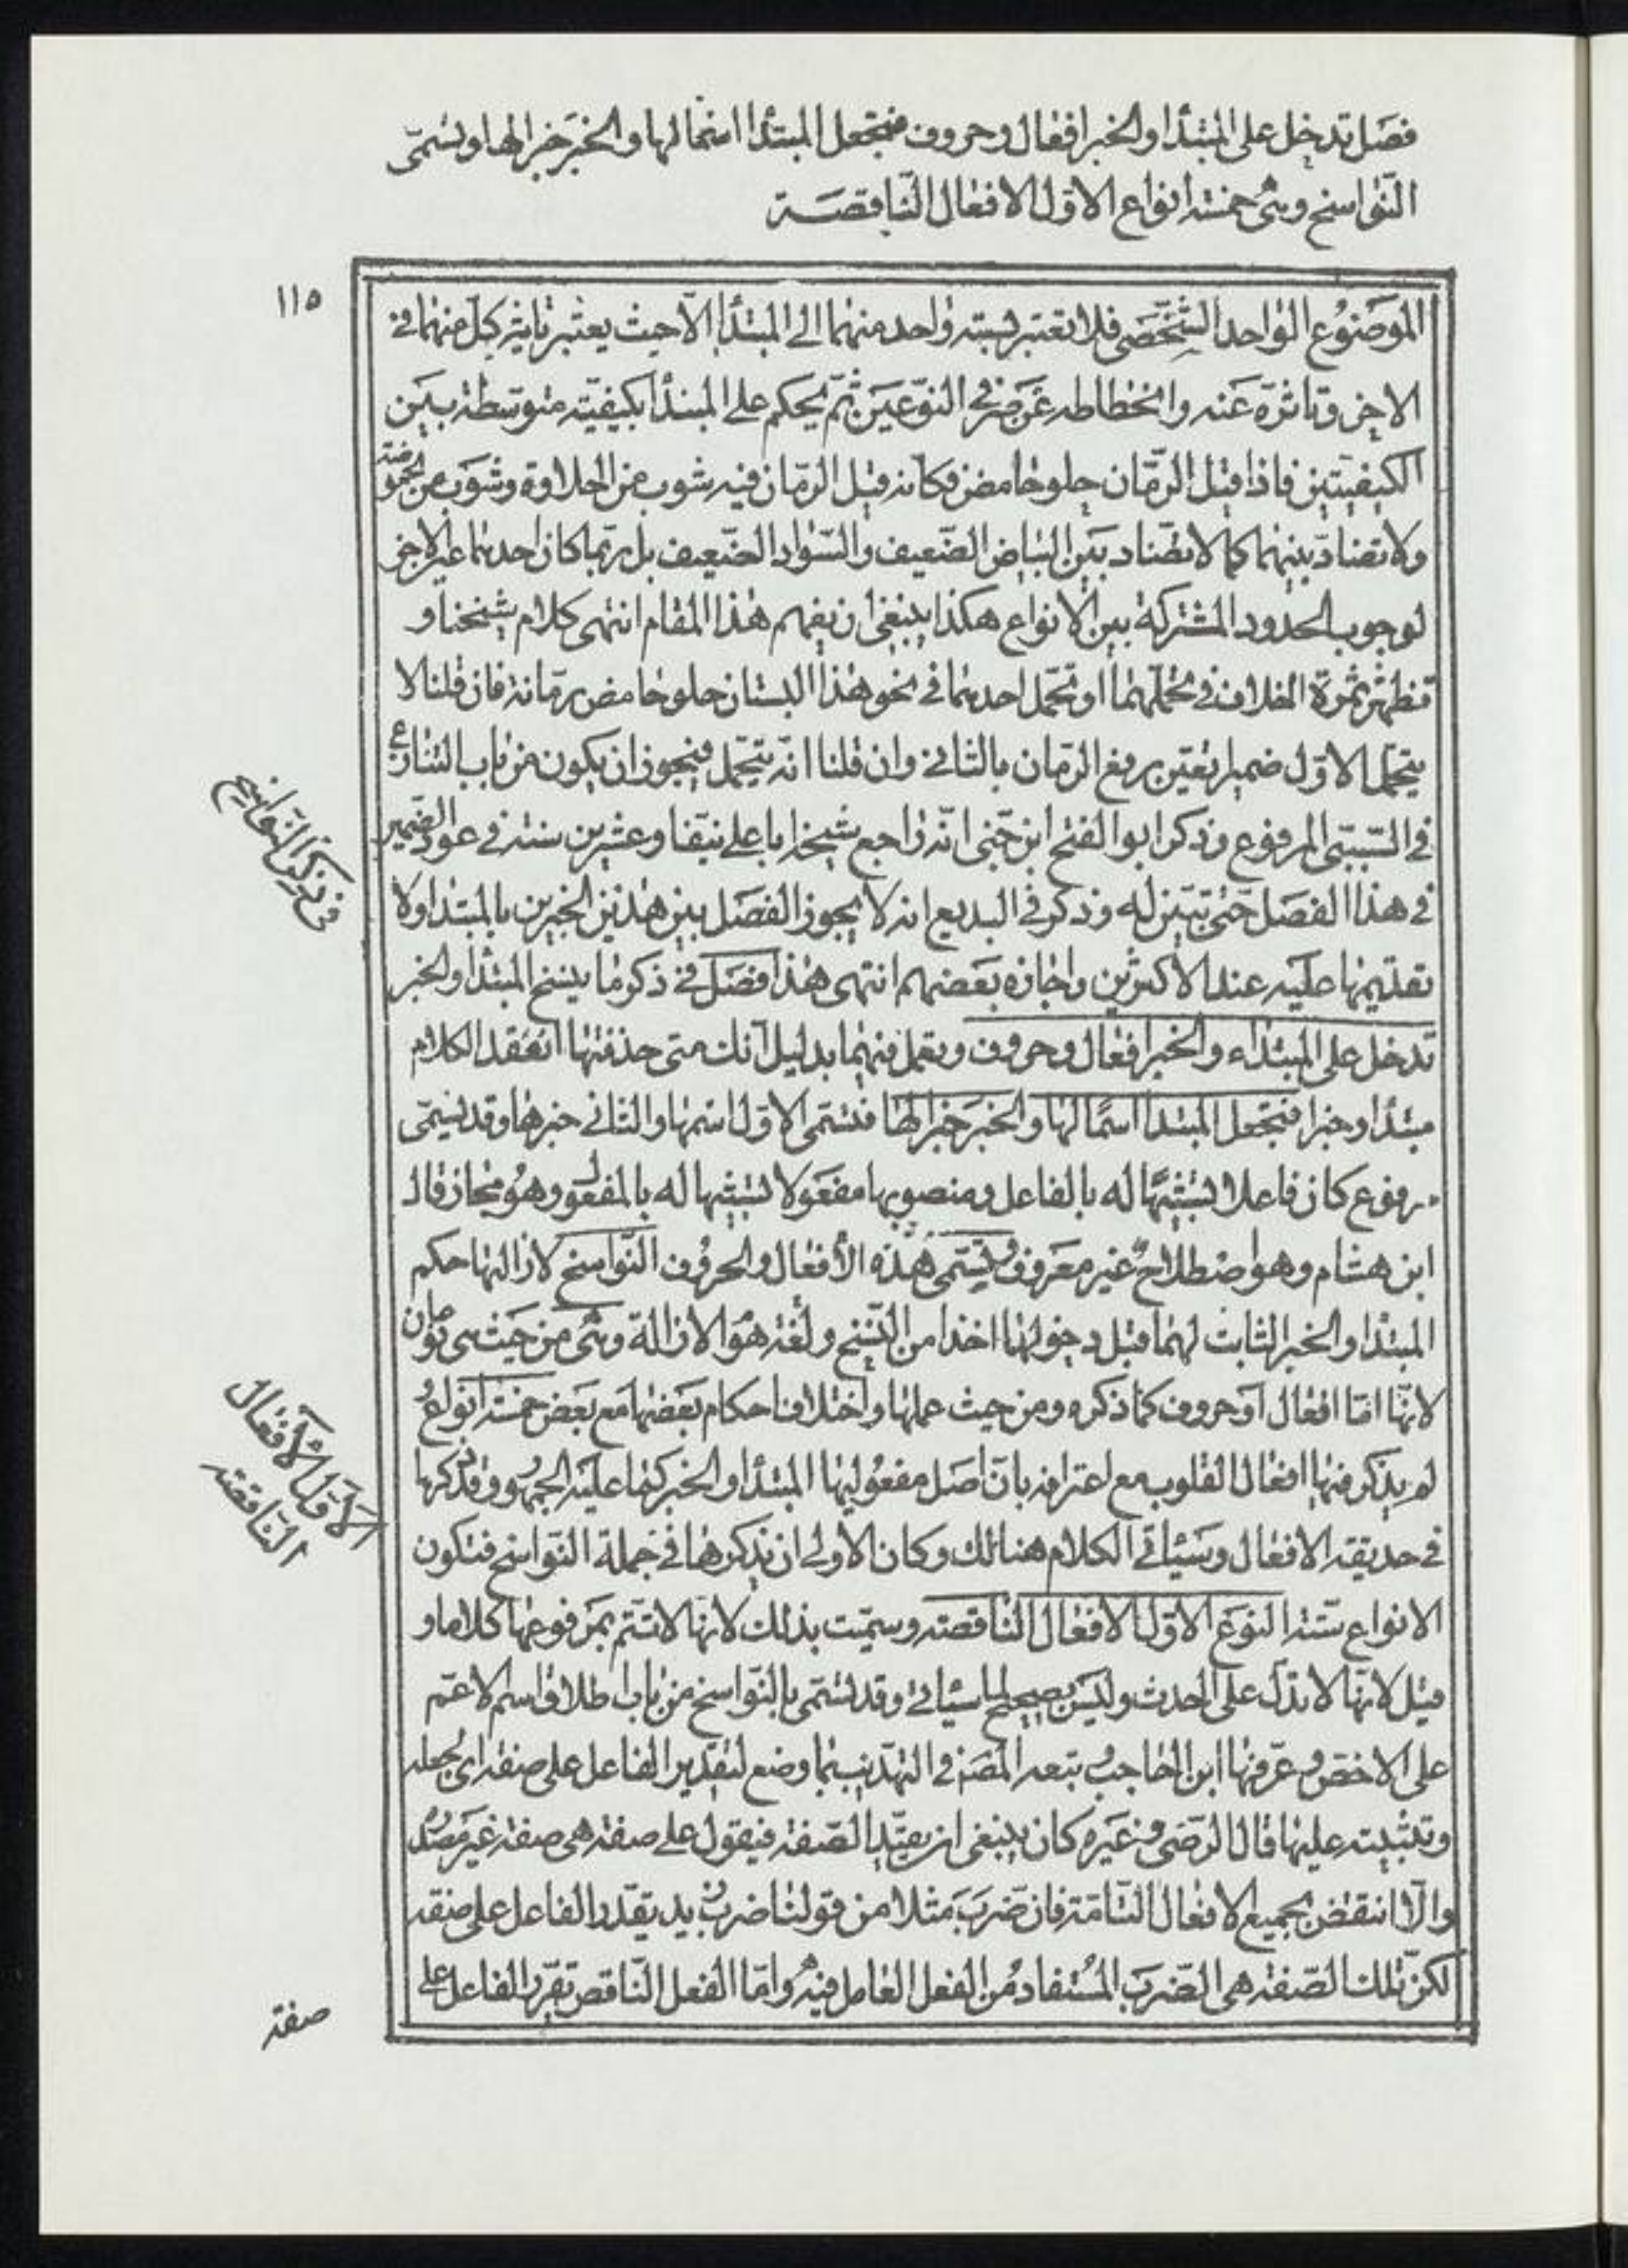 فصل تدخل على المبتدا والخبر افعال وحروف فتجعل المبتدا اسما لها والخبر خبرا لها ويسمى
النواسخ وهى خمسة انواع الاول الافعال الناقصة
١١٥
الموضوع الواحد الشخصى فلا تعتبر نسبة واحد منهما الى المبتدا الا حيث يعتبر تاثير كل منهما فى
الاخر وتاثره عنه وانخطاطه عن صرف النوعين ثم يحكم على المبتدأ بكيفيته متوسطة بين
الكيفيتين فاذا قيل الرمان حلو حامض فكانه قيل الرمان فيه شوب من الحلاوة وشوب من الحموضة
ولا تضاد بينهما كما لا تضاد بين البياض الضعيف والسواد الضعيف بل ربما كان احدهما عين الاخر
لوجوب الحدود المشتركة بين الانواع هكذا ينبغى ان يفهم هذا المقام انتهى كلام شيخنا و
تظهر ثمرة الخلاف فى تحملهما او تحمل احدهما فى نحو هذا البستان حلو حامض رمانه فان قلنا لا
يتحمل الاول ضميرا تعين رفع الرمان بالثانى وان قلنا انه يتحمل فيجوز ان يكون من باب التنازع
فى السببى المرفوع وذكر ابو الفتح ابن جنى انه راجع شيخه ابا على نيفا وعشرين سنة فى عود الضمير
فى هذا الفصل حتى تبين له وذكر فى البديع انه لا يجوز الفصل بين هذين الخبرين بالمبتدا ولا
تقديمها عليه عند الاكثرين واجازه بعضهم انتهى هذا فصل فى ذكر ما ينسخ المبتدأ والخبر
تدخل على المبتداء والخبر افعال وحروف وتعمل فيهما بدليل انك متى حذفتها انعقد الكلام
مبتدأ وخبرا فتجعل المبتدا اسمًا لها والخبر خبرا لها فتسمى الاول اسمها والثانى خبرها وقد يسمى
مرفوع كان فاعلا تشبيهًا له بالفاعل ومنصوبها مفعولا تشبيها له بالمفعول وهو مجاز قال
ابن هشام وهو اصطلاح غير معروف وتسمى هذه الأفعال والحروف النواسخ لازالتها حكم
المبتدا والخبر الثابت لهما قبل دخولها اخذا من النسخ ولغة هو الازالة وهى من حيث هى نوعان
لانها اما افعال او حروف كما ذكره ومن حيث عملها واختلاف احكام بعضها مع بعض خمسة انواع
لم يذكر فيها افعال القلوب مع اعترافه بان اصل مفعوليها المبتدأ والخبر كما عليه الجمهور وقد ذكرها
فى حديقة الافعال وسياتى الكلام هنالك وكان الاولى ان تذكرها فى جملة النواسخ فتكون
الانواع ستة النوع الاول الافعال الناقصة وسميت بذلك لانها لا تتم بمرفوعها كلاما و
قيل لانها لا تدل على الحدث وليس بصحيح لما سياتى وقد تسمى بالنواسخ من باب اطلاق اسم الاعم
على الاخص وعرفها ابن الحاجب وتبعه المص فى التهذيب بما وضع لتقدير الفاعل على صفة اى لجعله
وتثبيته عليها قال الرضى وغيره كان ينبغى ان يقيد الصفة فيقول على صفة هى صفة غير مصدره
والا انتقض بجميع الافعال التامة فان ضرب مثلا من قولنا ضرب زيد تقدير الفاعل على صفة
لكن تلك الصفة هى الضرب المستفاد من الفعل العامل فيه واما الفعل الناقص تقرر الفاعل على
صفة
فى ذكر النواسخ
الاول الافعال
الناقصة